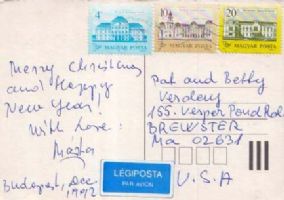 4 Ft 10 Ft 20 Ft
MAGYAR POSTA MAGYAR POSTA MAGYAR POSTA
Merry Christmas
and Happy
New Year!
With Love:
Budapest, Dec.
1992
LÉGIPOSTA
PAR AVION
Pat and Betty
155. Vesper Pond Rd.
BREWSTER
Ma 02631
U.S.A